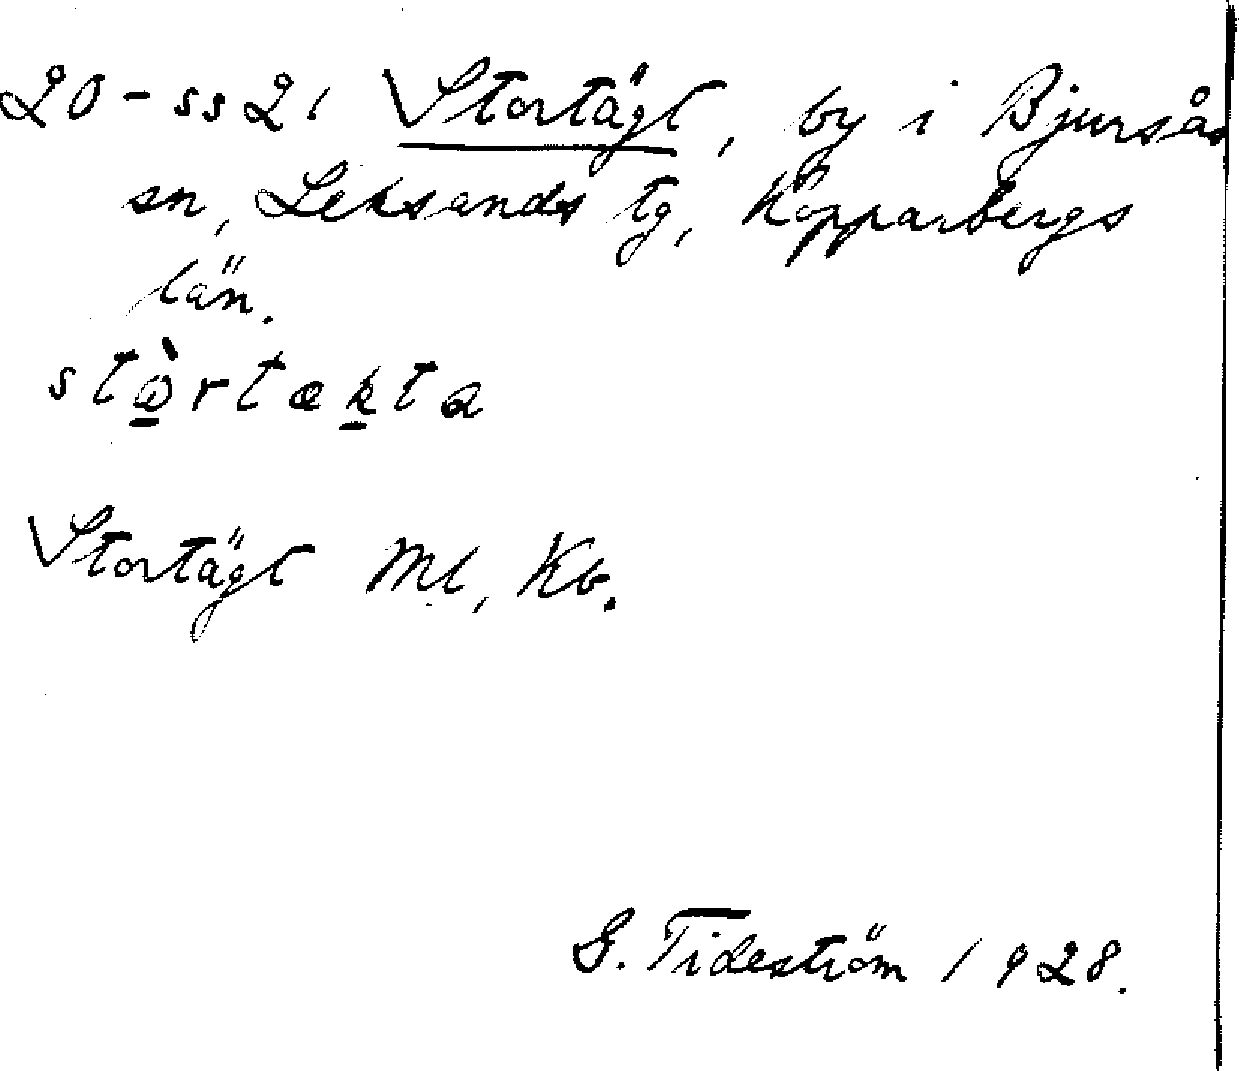 20-ss21 Stortägt, by i Bjursås
sn, Leksands tg, Kopparbergs
län.
stòrtækta
Stortägt Ml, Kb.
G. Tideström 1928.